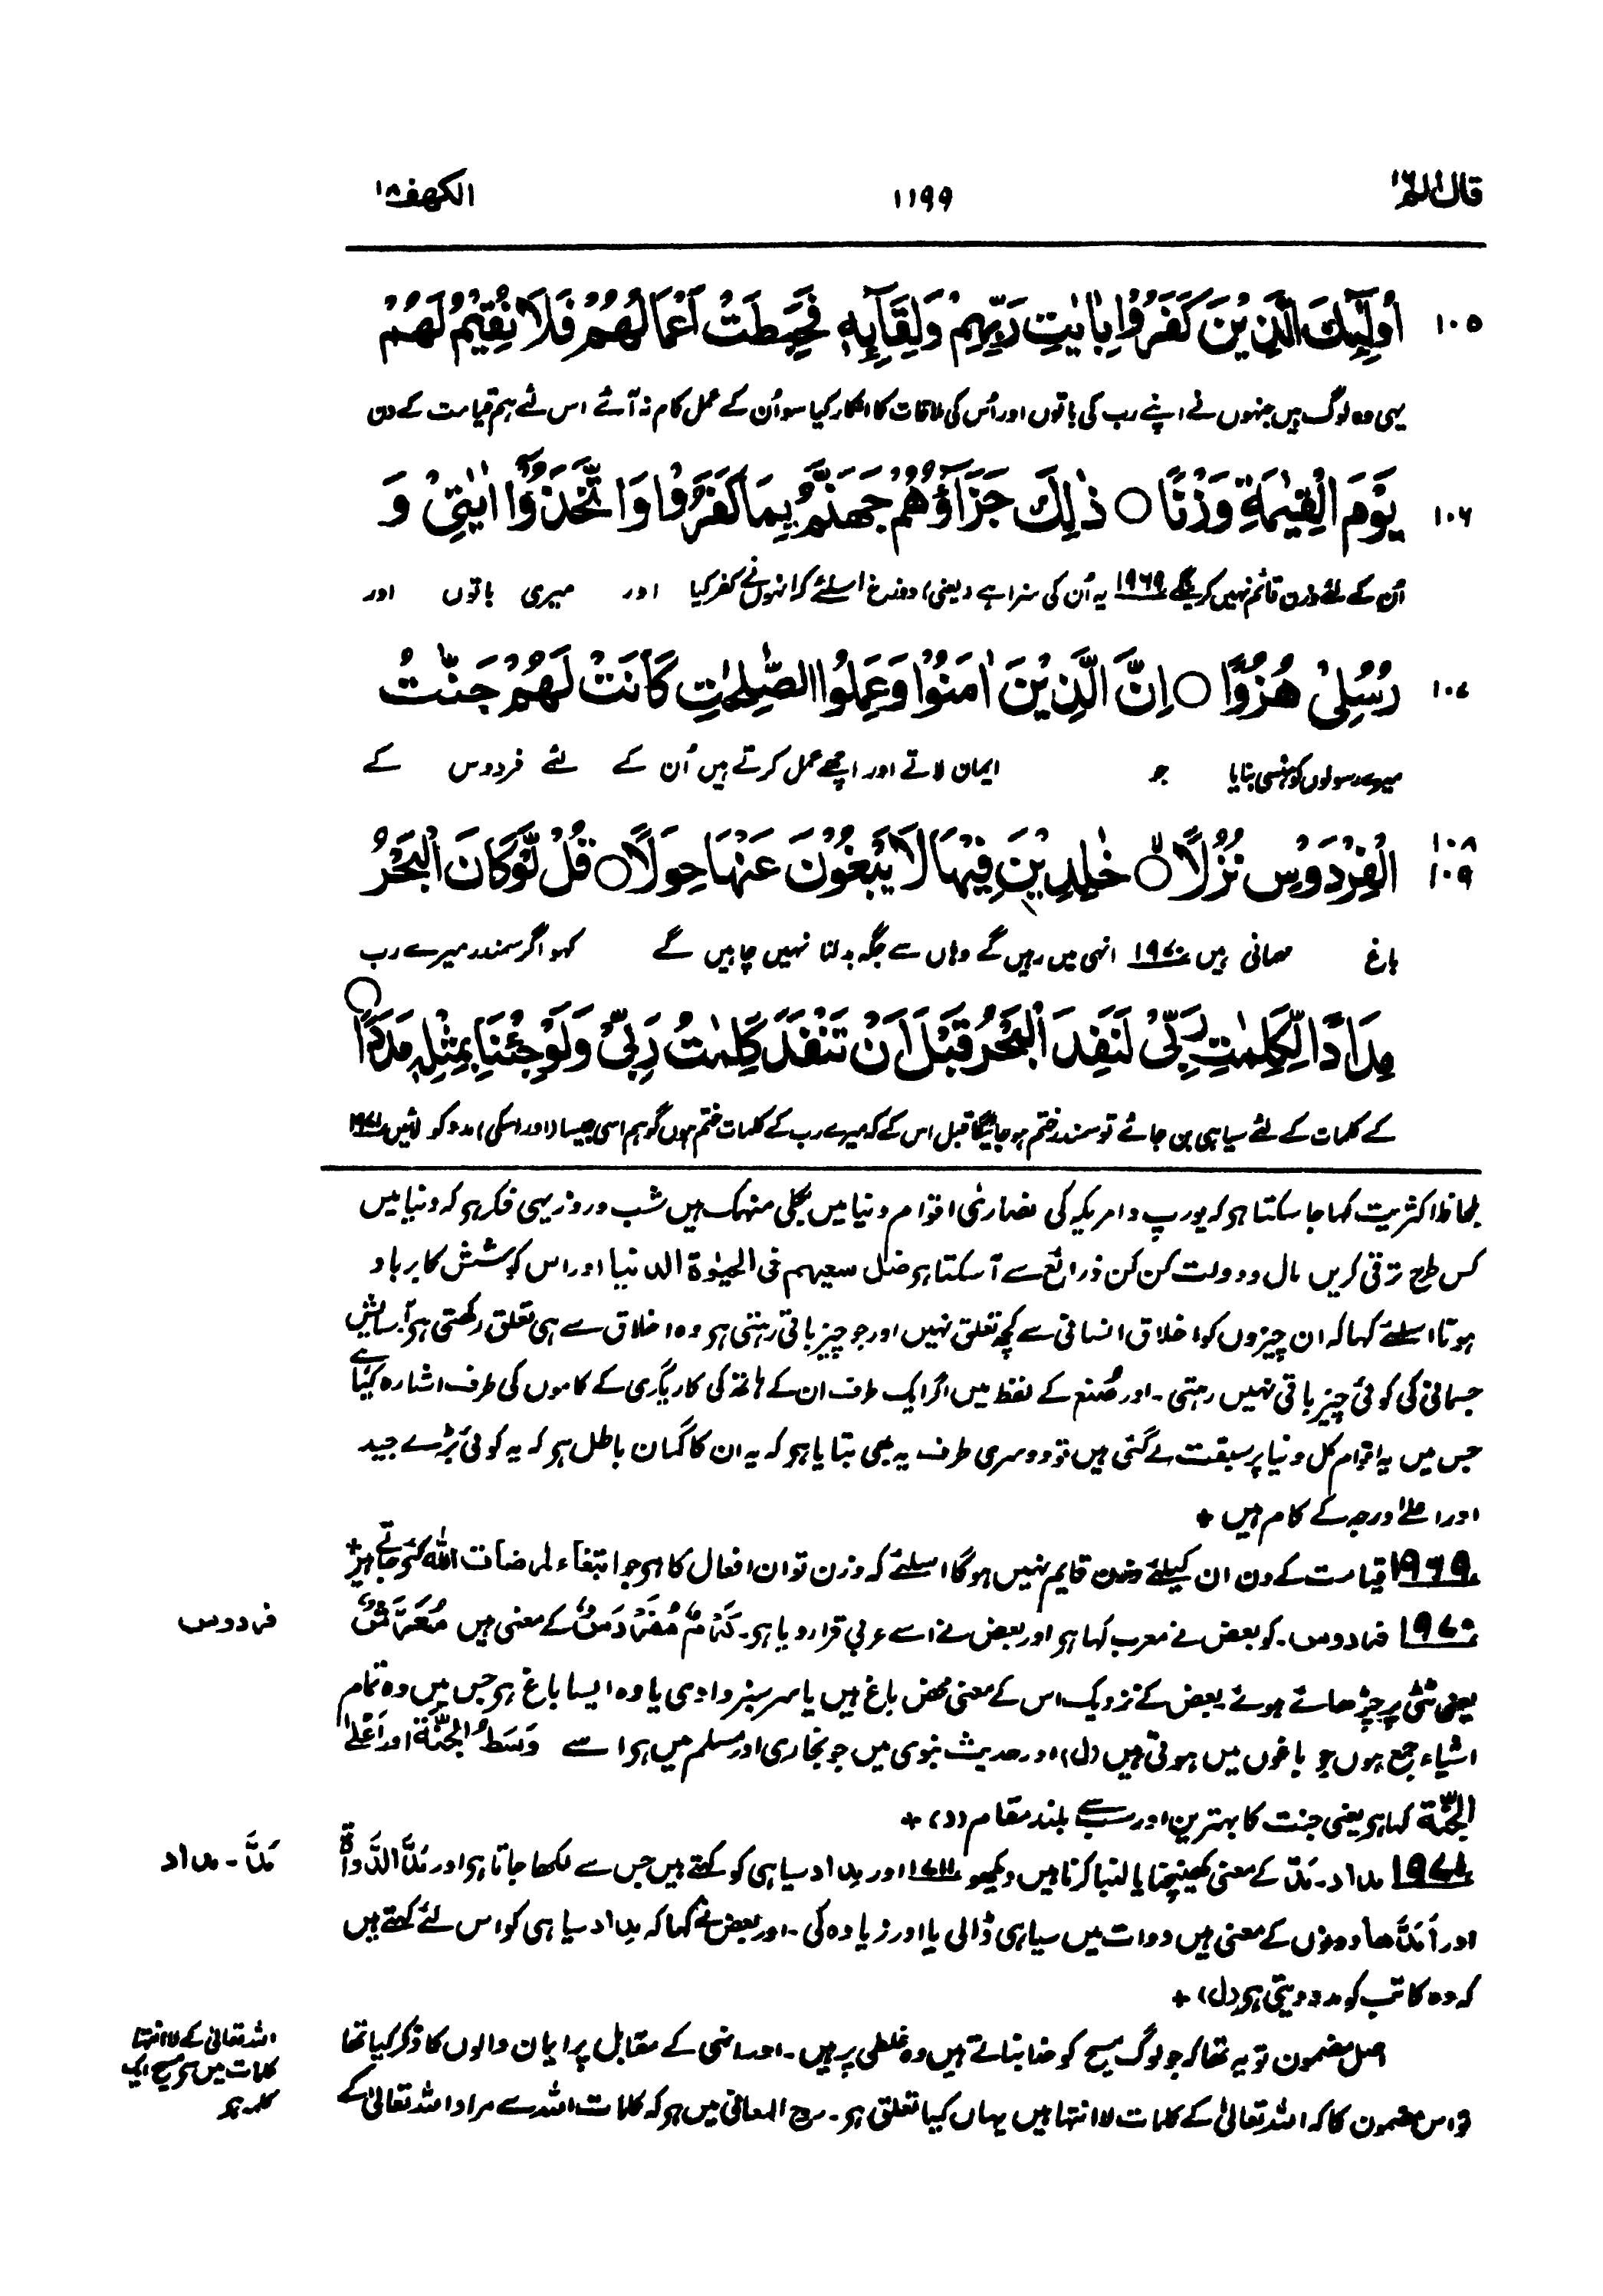 قال الم ١٦
١١٩٩
الکھف ١٨
١٠٥ اُولٰٓئِكَ الَّذِيْنَ كَفَرُوْا بِاٰيٰتِ رَبِّهِمْ وَلِقَآئِهٖ فَحَبِطَتْ اَعْمَالُهُمْ فَلَا نُقِيْمُ لَهُمْ
یہی وہ لوگ ہیں جنہوں نے اپنے رب کی باتوں اور اُس کی ملاقات کا انکار کیا سو اُن کے عمل کام نہ آئے اس لئے ہم قیامت کے دن
١٠٦ يَوْمَ الْقِيٰمَةِ وَزْنًا ○ ذٰلِكَ جَزَآؤُهُمْ جَهَنَّمُ بِمَا كَفَرُوْا وَاتَّخَذُوْٓا اٰيٰتِيْ وَ
اُن کے لئے وزن قائم نہیں کرینگے ١٩٦٩ یہ اُن کی سزا ہے (یعنی) دوزخ اسلئے کہ انہوں نے کفر کیا اور میری باتوں اور
١٠٧ رُسُلِيْ هُزُوًا ○ اِنَّ الَّذِيْنَ اٰمَنُوْا وَعَمِلُوا الصّٰلِحٰتِ كَانَتْ لَهُمْ جَنّٰتُ
میرے رسولوں کو ہنسی بنایا جو ایمان لاتے اور اچھے عمل کرتے ہیں اُن کے لئے فردوس کے
١٠٨ ١٠٩ الْفِرْدَوْسِ نُزُلًا ○ خٰلِدِيْنَ فِيْهَا لَا يَبْغُوْنَ عَنْهَا حِوَلًا ○ قُلْ لَّوْ كَانَ الْبَحْرُ
باغ مہمانی ہیں ١٩٧٠ انہی میں رہیں گے وہاں سے جگہ بدلنا نہیں چاہیں گے کہو اگر سمندر میرے رب
مِدَادًا لِّكَلِمٰتِ رَبِّيْ لَنَفِدَ الْبَحْرُ قَبْلَ اَنْ تَنْفَدَ كَلِمٰتُ رَبِّيْ وَلَوْ جِئْنَا بِمِثْلِهٖ مَدَدًا ○
کے کلمات کے لئے سیاہی بن جائے تو سمندر ختم ہو جائیگا قبل اس کے کہ میرے رب کے کلمات ختم ہوں گو ہم اسی جیسا (اور اسکی) مدد کو لائیں ١٩٧١
بلحاظ اکثریت کہا جا سکتا ہو کہ یورپ و امریکہ کی نصاریٰ اقوام دنیا میں بکلی منہمک ہیں شب و روز یہی فکر ہو کہ دنیا میں
کس طرح ترقی کریں مال و دولت کن کن ذرائع سے آسکتا ہو ضل سعیھم فی الحیٰوۃ الدنیا اور اس کوشش کا برباد
ہونا اسلئے کہا کہ ان چیزوں کو اخلاق انسانی سے کچھ تعلق نہیں اور جو چیز باقی رہتی ہو وہ اخلاق سے ہی تعلق رکھتی ہو۔ آسایش
جسمانی کی کوئی چیز باقی نہیں رہتی۔ اور صُنع کے لفظ میں اگر ایک طرف ان کے ہاتھ کی کاریگری کے کاموں کی طرف اشارہ کیا ہے
جس میں یہ اقوام کل دنیا پر سبقت لے گئی ہیں تو دوسری طرف یہ بھی بتایا ہو کہ یہ ان کا گمان باطل ہو کہ یہ کوئی بڑے جید
اور اعلےٰ درجہ کے کام ہیں +
١٩٦٩ قیامت کے دن ان کیلئے وزن قایم نہیں ہوگا اسلئے کہ وزن تو ان افعال کا ہو جو ابتغاء لمرضات اللہ کئے جاتے ہیں +
١٩٧٠ فردوس۔ کو بعض نے معرب کہا ہو اور بعض نے اسے عربی قرار دیا ہو۔ کَرْمٌ مُفَرْدَسٌ کے معنی ہیں مُعَرَّشٌ
فردوس
یعنی ٹٹی پر چڑھائے ہوئے بعض کے نزدیک اس کے معنی محض باغ ہیں یا سرسبز وادی یا وہ ایسا باغ ہو جس میں وہ تمام
اشیاء جمع ہوں جو باغوں میں ہوتی ہیں (ل) اور حدیث نبوی میں جو بخاری اور مسلم میں ہو اسے وَسَطُ الْجَنَّة اور اَعْلےٰ
الْجَنَّة کہا ہو یعنی جنت کا بہترین اور سب سے بلند مقام (د) +
١٩٧١ مداد۔ مَدّ کے معنی کھینچنا یا لنبا کرنا ہیں دیکھو ١٧١١ اور مِداد سیاہی کو کہتے ہیں جس سے لکھا جاتا ہو اور مَدَّ الدَّواۃَ
مَدَّ۔ مداد
اور اَمَدَّھا دونوں کے معنی ہیں دوات میں سیاہی ڈالی یا اور زیادہ کی۔ اور بعض نے کہا کہ مِداد سیاہی کو اس لئے کہتے ہیں
کہ وہ کاتب کو مدد دیتی ہو (ل) +
اصل مضمون تو یہ تھا کہ جو لوگ مسیح کو خدا بناتے ہیں وہ غلطی پر ہیں۔ اور انہی کے مقابل پر ایمان والوں کا ذکر کیا تھا
تو اس مضمون کا کہ اللہ تعالیٰ کے کلمات لا انتہا ہیں یہاں کیا تعلق ہو۔ روح المعانی میں ہو کہ کلمات اللہ سے مراد اللہ تعالیٰ کے
اللہ تعالیٰ کے لا انتہا
کلمات میں سے مسیح ایک
کلمہ ہو